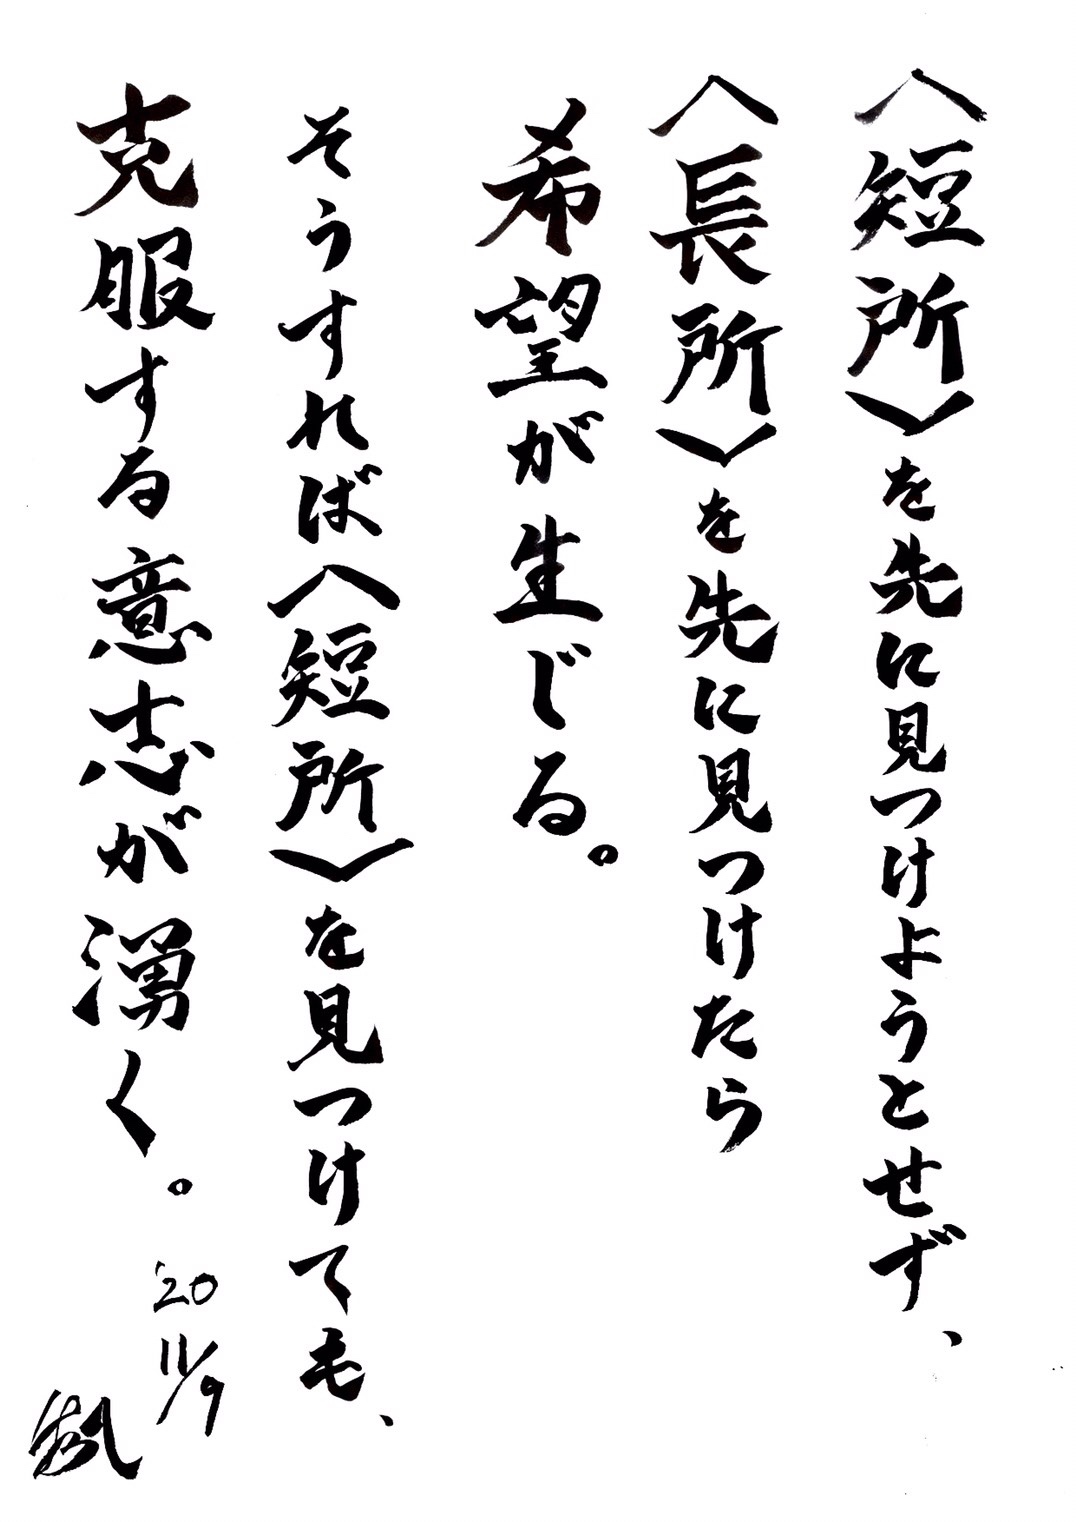 〈短所〉を先に見つけようとせず、
〈長所〉を先に見つけたら
希望が生じる。
そうすれば〈短所〉を見つけても、
克服する意志が湧く。
'20
11/9